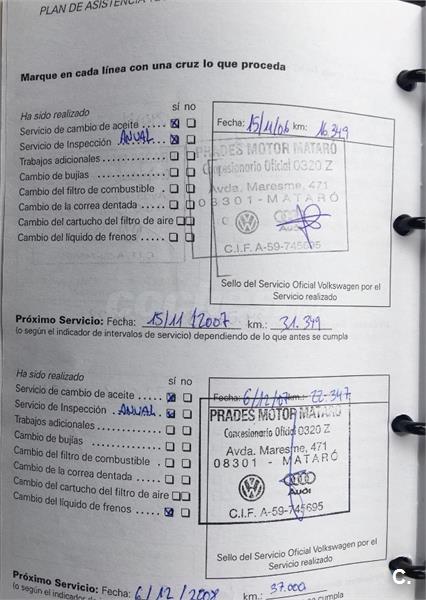 PLAN DE ASISTENCIA
Marque en cada línea con una cruz lo que proceda
Ha sido realizado sí no
Servicio de cambio de aceite ..... x
Servicio de Inspección ANUAL .. x
Trabajos adicionales ............
Cambio de bujías ................
Cambio del filtro de combustible .
Cambio de la correa dentada .....
Cambio del cartucho del filtro de aire
Cambio del líquido de frenos ......
Fecha: 15/11/06 km: 16.349
PRADES MOTOR MATARÓ
Concesionario Oficial 0320 Z
Avda. Maresme, 471
08301 - MATARÓ
AUDI
C.I.F. A-59-745695
Sello del Servicio Oficial Volkswagen por el
Servicio realizado
Próximo Servicio: Fecha: 15/11/2007 km.: 31.349
(o según el indicador de intervalos de servicio) dependiendo de lo que antes se cumpla
Ha sido realizado sí no
Servicio de cambio de aceite ..... x
Servicio de Inspección ANUAL .. x
Trabajos adicionales ............
Cambio de bujías ................
Cambio del filtro de combustible .
Cambio de la correa dentada .....
Cambio del cartucho del filtro de aire
Cambio del líquido de frenos ...... x
Fecha: 6/12/07 km.: 22.347
PRADES MOTOR MATARÓ
Concesionario Oficial 0320 Z
Avda. Maresme, 471
08301 - MATARÓ
AUDI
C.I.F. A-59-745695
Sello del Servicio Oficial Volkswagen por el
Servicio realizado
Próximo Servicio: Fecha: 6/12/2008 km.: 37.000
(o según el indicador de se cumpla
C.